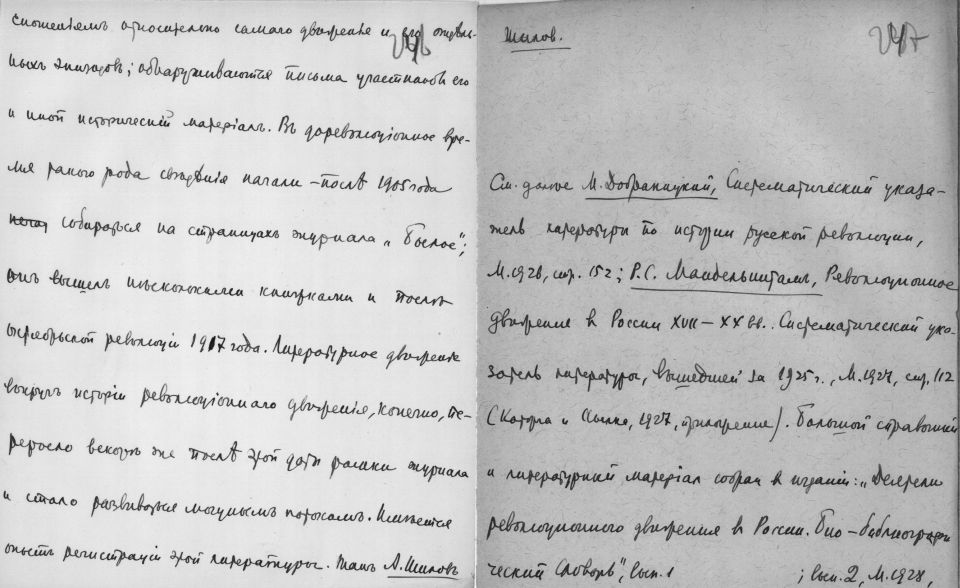 сношеніямъ относительно самаго движенія и его отдѣль-
ныхъ эпизодовъ; обнаруживаются письма участниковъ его
и иной историческій матеріалъ. Въ дореволюціонное вре-
мя такого рода свѣдѣнія начали – послѣ 1905 года
собираться на страницахъ журнала „Былое";
онъ вышелъ нѣсколькими книжками и послѣ
октябрьской революціи 1917 года. Литературное движеніе
вокругъ исторіи революціоннаго движенія, конечно, пе-
реросло вскорѣ же послѣ этой даты рамки журнала
и стало развиваться могучимъ потокомъ. Имѣется
опытъ регистраціи этой литературы. Такъ Л. Шиловъ
247
Шилов.
См. далѣе М. Добраницкий, Систематический указа-
тель литературы по истории русской революции,
М. 1926, стр. 152; Р.С. Мандельштамъ, Революционное
движение в России XVII–XX вв. Систематический ука-
затель литературы, вышедшей за 1925 г., М. 1927, стр. 112
(Каторга и Ссылка, 1927, приложение). Большой справочный
и литературный матеріал собран в изданіи: „Деятели
революционного движения в России. Био-библиографи
ческий словарь", вып. 1 ; вып. 2, М. 1928,